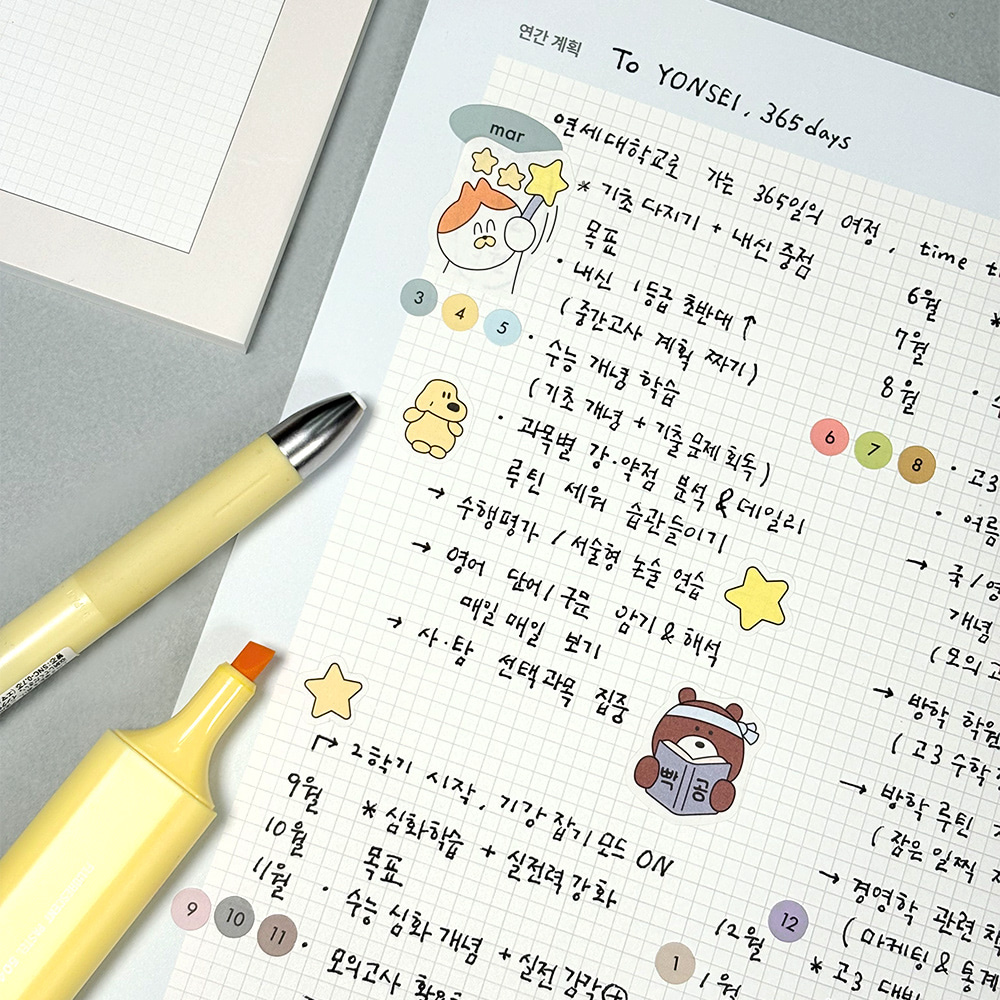 연간 계획
To YONSEI, 365days
mar
연세대학교로 가는 365일의 여정, time
* 기초 다지기 + 내신 중점
목표
· 내신 1등급 초반대 ↑
(중간고사 계획 짜기)
3 4 5
· 수능 개념 학습
(기초 개념 + 기출문제 회독)
· 과목별 강·약점 분석 & 데일리
루틴 세워 습관들이기
→ 수행평가 / 서술형 논술 연습
→ 영어 단어/구문 암기 & 해석
매일매일 보기
→ 사·탐 선택과목 집중
빡공
→ 2학기 시작, 기강 잡기 모드 ON
9월
10월
11월
* 심화학습 + 실전력 강화
목표
9 10 11
· 수능 심화 개념 + 실전 감각
· 모의고사
6월
7월
8월
*
6 7 8
· 고3
· 여름
→ 국/영
개념
(모의고
→ 방학 학원
(고3 수학
→ 방학 루틴
(잠은 일찍
→ 경영학 관련
(마케팅 & 통계
12
12월
1
1월
* 고3